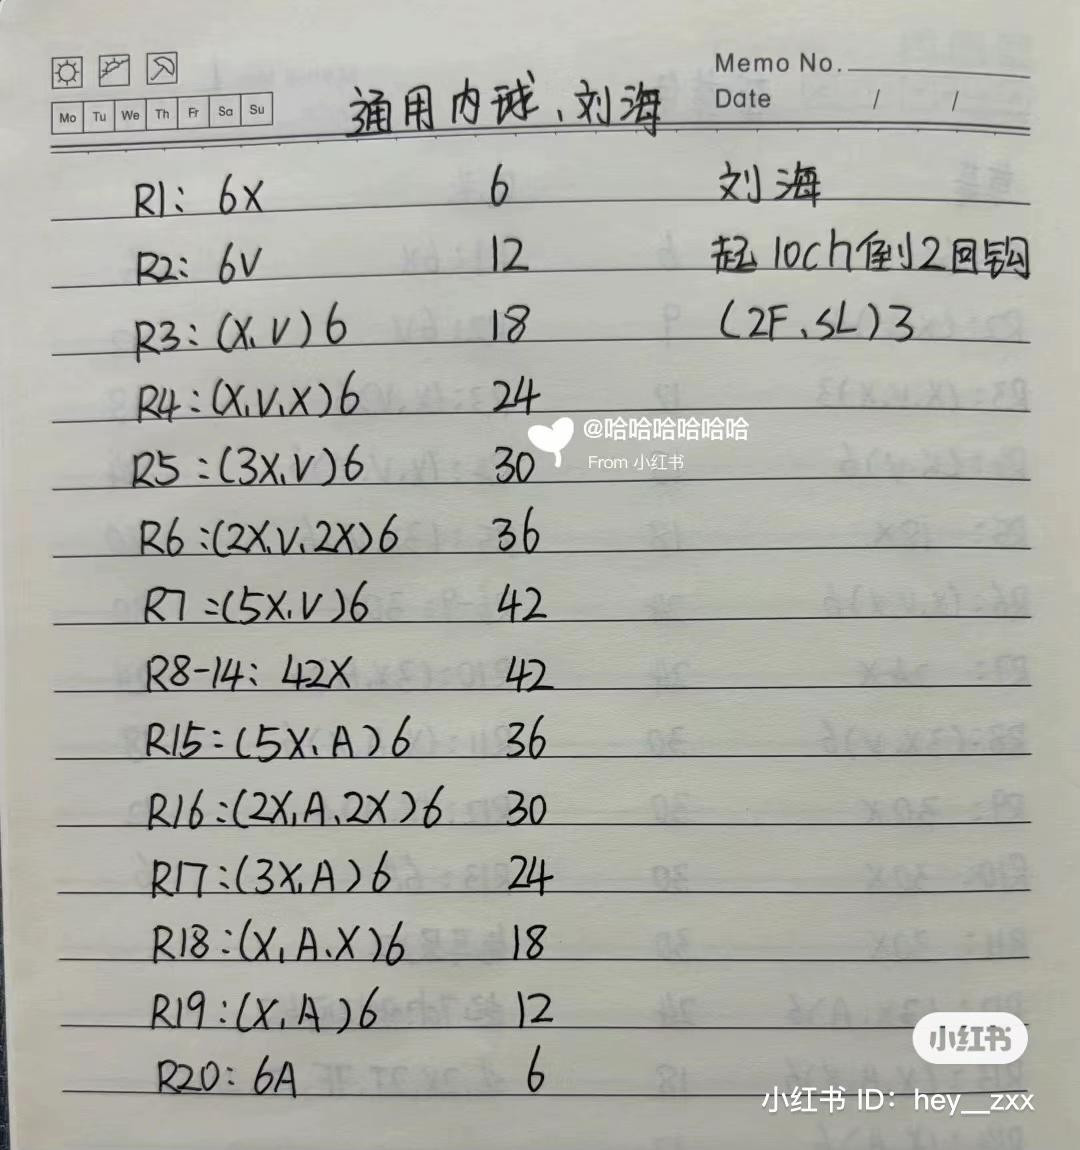 Memo No.
Date / /
Mo Tu We Th Fr Sa Su
通用内球、刘海
R1: 6X 6
R2: 6V 12
R3: (X, V)6 18
R4: (X, V, X)6 24
R5: (3X, V)6 30
R6: (2X, V, 2X)6 36
R7: (5X, V)6 42
R8-14: 42X 42
R15: (5X, A)6 36
R16: (2X, A, 2X)6 30
R17: (3X, A)6 24
R18: (X, A, X)6 18
R19: (X, A)6 12
R20: 6A 6
刘海
起10ch倒2回钩
(2F, SL)3
@哈哈哈哈哈哈
From 小红书
小红书
小红书 ID: hey__zxx